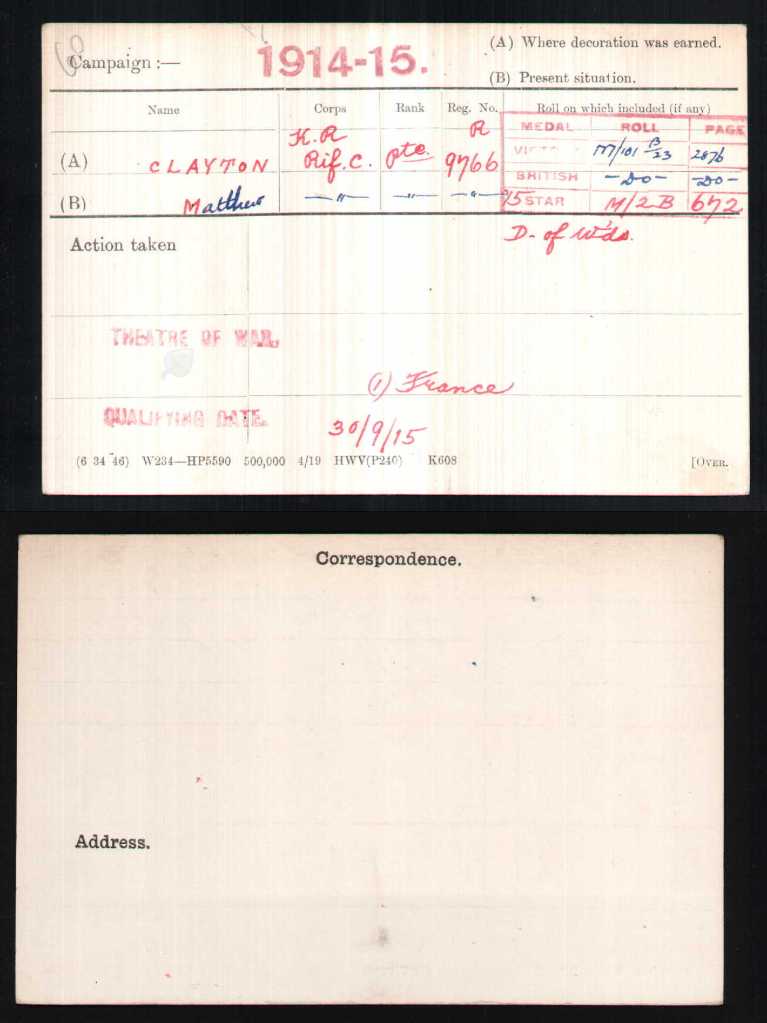 Campaign :— 1914-15. (A) Where decoration was earned.
(B) Present situation.
Name Corps Rank Reg. No. Roll on which included (if any)
MEDAL ROLL PAGE
(A) CLAYTON K.R Rif. C. Pte. R 9766
VICTORY M/101 B 23 2876
BRITISH —DO— —DO—
(B) Matthew —"— —"— —"— 15 STAR M/2 B 672
Action taken D- of W'ds.
THEATRE OF WAR.
(1) France
QUALIFYING DATE.
30/9/15
(6 34 46) W234—HP5590 500,000 4/19 HWV(P240) K608 [OVER.
Correspondence.
Address.